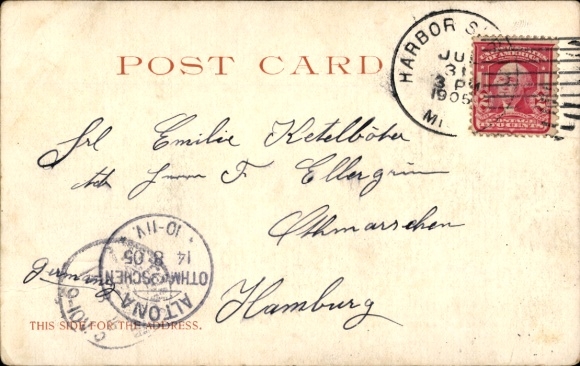 POST CARD
HARBOR S
JUL
31
3 PM
1905
MI
POSTAGE
TWO CENTS
Frl Emilie Ketelhöter
F. Ellergrün
Othmarschen
Germany
Hamburg
ALTONA
OTHMARSCHEN
14 8 05
10-11V.
THIS SIDE FOR THE ADDRESS.